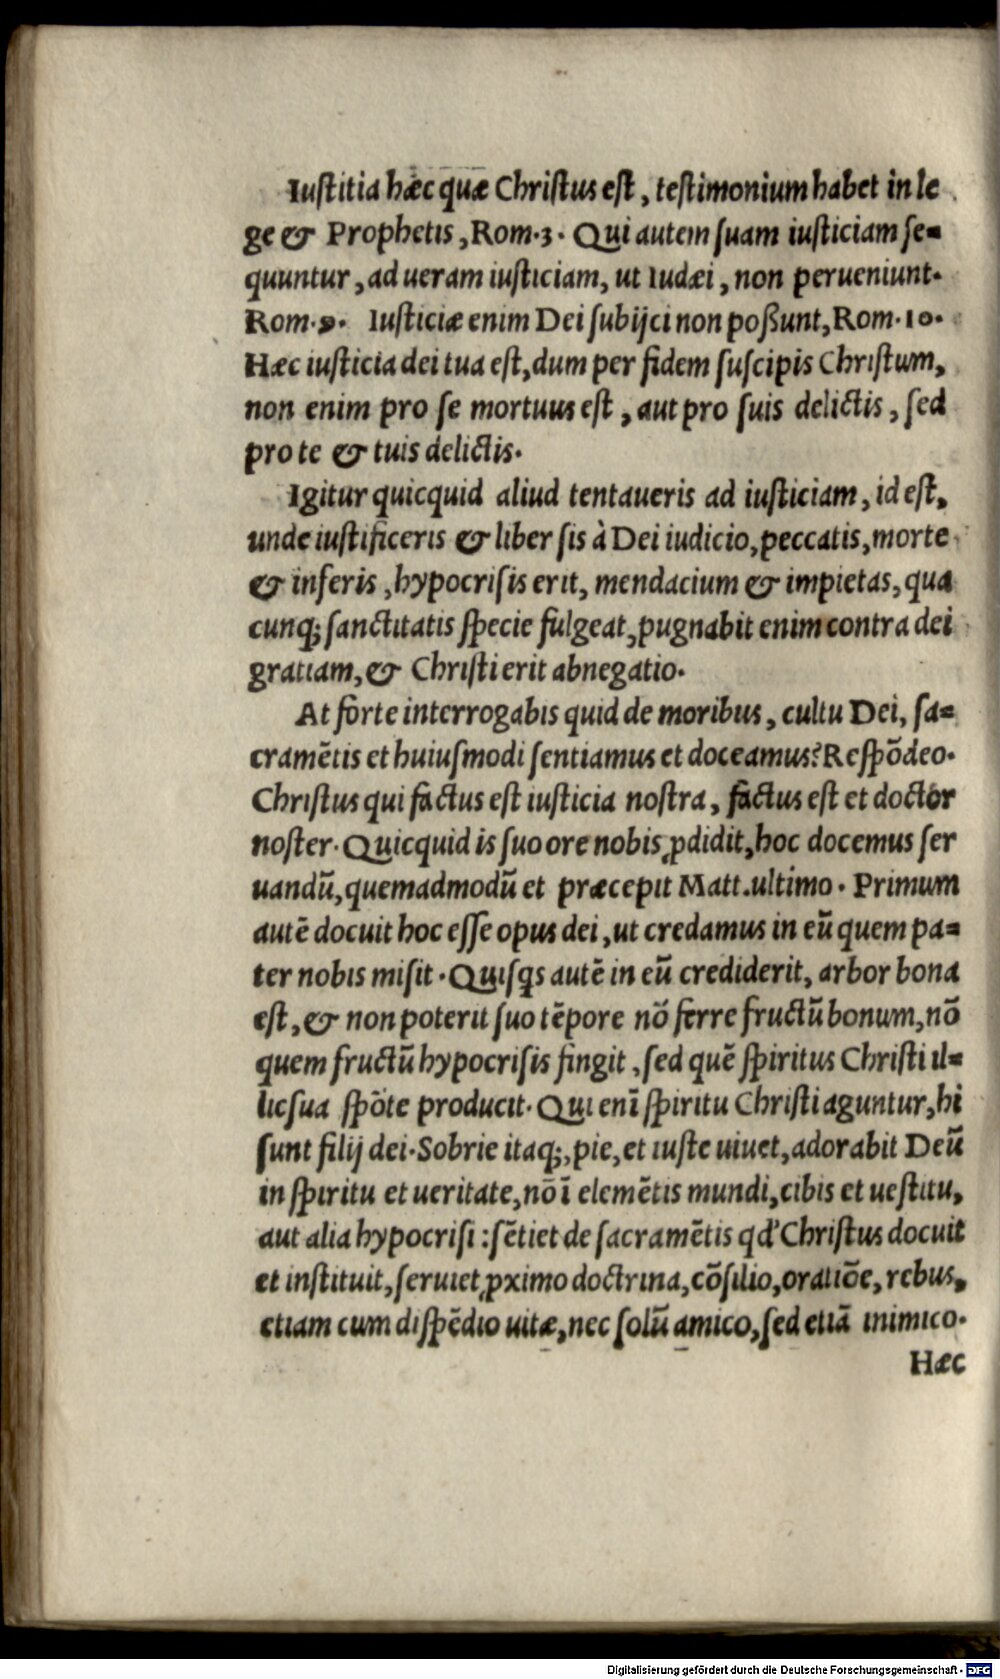 Iuſtitia hæc quæ Chriſtus eſt, teſtimonium habet in le
ge & Prophetis, Rom.3. Qui autem ſuam iuſticiam ſe=
quuntur, ad ueram iuſticiam, ut Iudæi, non perueniunt.
Rom.9. Iuſticiæ enim Dei ſubijci non poßunt, Rom.10.
Hæc iuſticia dei tua eſt, dum per fidem ſuſcipis Chriſtum,
non enim pro ſe mortuus eſt, aut pro ſuis delictis, ſed
pro te & tuis delictis.
Igitur quicquid aliud tentaueris ad iuſticiam, id eſt,
unde iuſtificeris & liber ſis à Dei iudicio, peccatis, morte
& inferis, hypocriſis erit, mendacium & impietas, qua
cunq; ſanctitatis ſpecie fulgeat, pugnabit enim contra dei
gratiam, & Chriſti erit abnegatio.
At forte interrogabis quid de moribus, cultu Dei, ſa=
cramētis et huiuſmodi ſentiamus et doceamus? Reſpōdeo.
Chriſtus qui factus eſt iuſticia noſtra, factus eſt et doctor
noſter. Quicquid is ſuo ore nobis ꝓdidit, hoc docemus ſer
uandū, quemadmodū et præcepit Matt.ultimo. Primum
autē docuit hoc eſſe opus dei, ut credamus in eū quem pa=
ter nobis miſit. Quiſqs autē in eū crediderit, arbor bona
eſt, & non poterit ſuo tēpore nō ferre fructū bonum, nō
quem fructū hypocriſis fingit, ſed quē ſpiritus Chriſti il=
lic ſua ſpōte producit. Qui enī ſpiritu Chriſti aguntur, hi
ſunt filij dei. Sobrie itaq;, pie, et iuſte uiuet, adorabit Deū
in ſpiritu et ueritate, nō ī elemētis mundi, cibis et ueſtitu,
aut alia hypocriſi: ſētiet de ſacramētis qd' Chriſtus docuit
et inſtituit, ſeruiet ꝓximo doctrina, cōſilio, oratiōe, rebus,
etiam cum diſpēdio uitæ, nec ſolū amico, ſed etiā inimico.
Hæc
Digitalisierung gefördert durch die Deutsche Forschungsgemeinschaft - DFG